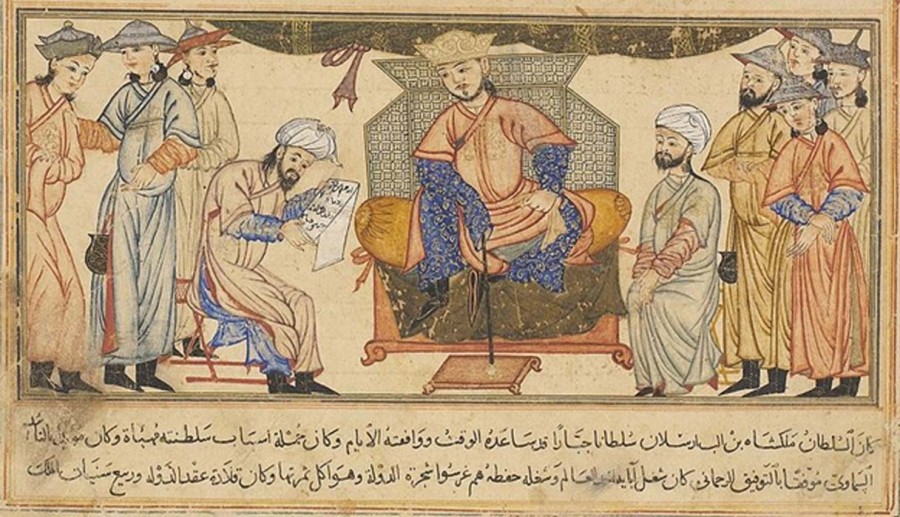 كان السلطان ملكشاه بن الب ارسلان سلطانا جبارا قد ساعده الوقت ووافقته الايام وكان جملة اسباب سلطنته مهيأة وكان
السماوى موفقا بالتوفيق الرحمانى كان شغل آبايه العالم وشغله حفظه هم غرسوا شجرة الدولة وهو اكل ثمرتها وكان قلادة عقد الدولة وربيع